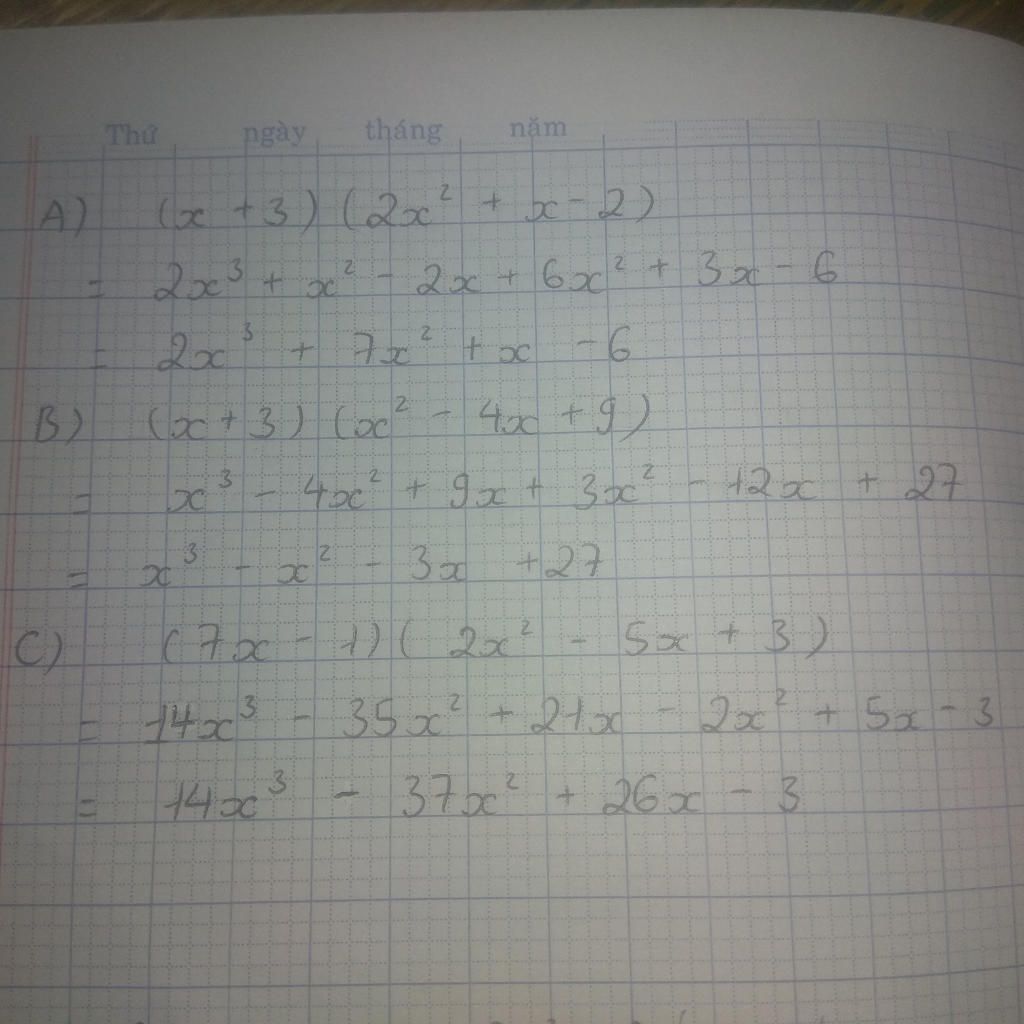 Thứ ngày tháng năm
A) (x + 3) (2x² + x - 2)
= 2x³ + x² - 2x + 6x² + 3x - 6
= 2x³ + 7x² + x - 6
B) (x + 3) (x² - 4x + 9)
= x³ - 4x² + 9x + 3x² - 12x + 27
= x³ - x² - 3x + 27
C) (7x - 1) (2x² - 5x + 3)
= 14x³ - 35x² + 21x - 2x² + 5x - 3
= 14x³ - 37x² + 26x - 3